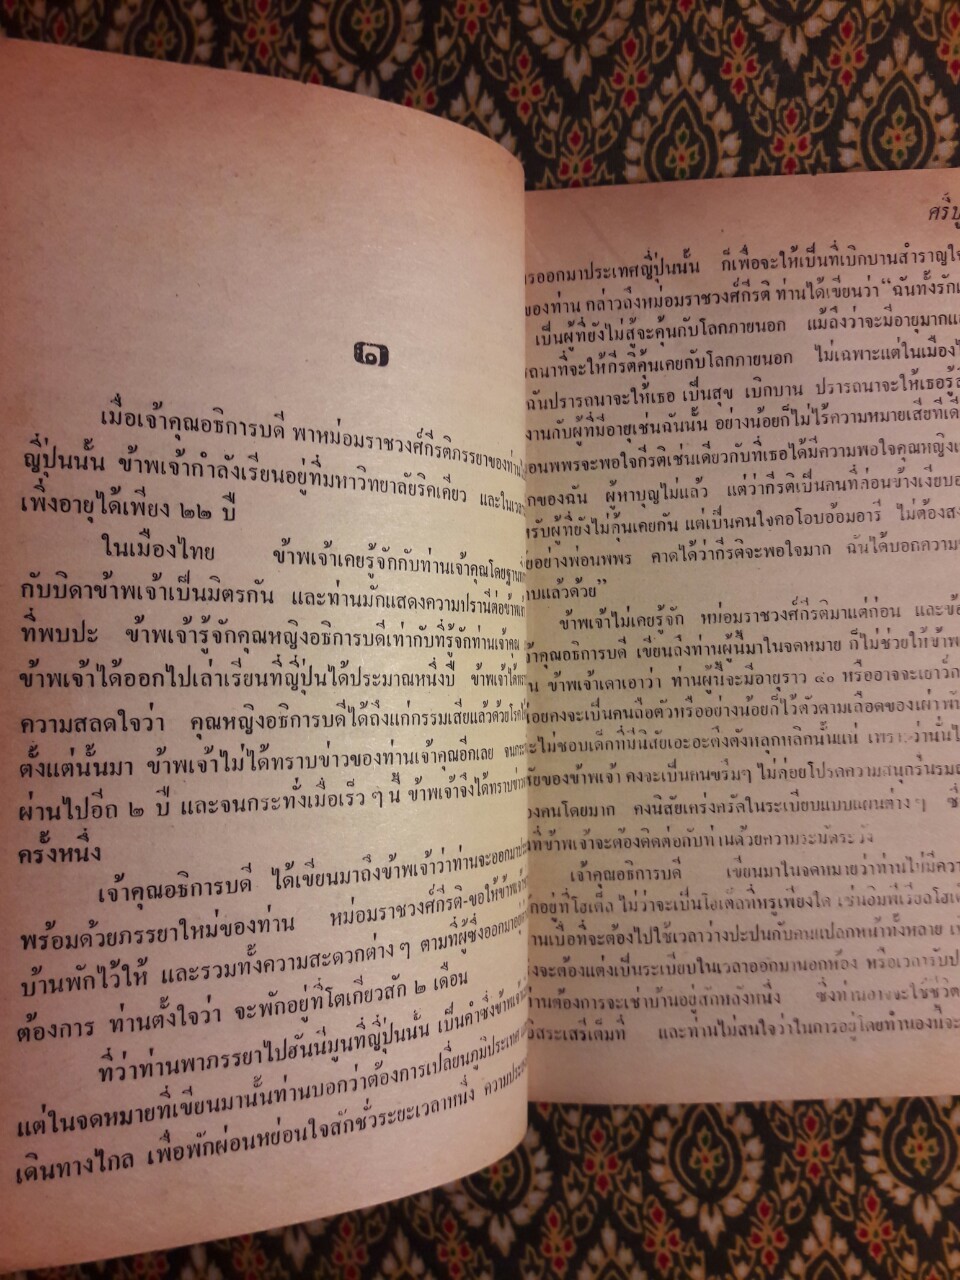 ๑
เมื่อเจ้าคุณอธิการบดี พาหม่อมราชวงศ์กีรติภรรยาของท่าน
ญี่ปุ่นนั้น ข้าพเจ้ากำลังเรียนอยู่ที่มหาวิทยาลัยริคเคียว และในเวลา
เพิ่งอายุได้เพียง ๒๒ ปี
ในเมืองไทย ข้าพเจ้าเคยรู้จักกับท่านเจ้าคุณโดยฐานที่
กับบิดาข้าพเจ้าเป็นมิตรกัน และท่านมักแสดงความปรานีต่อข้าพเจ้า
ที่พบปะ ข้าพเจ้ารู้จักคุณหญิงอธิการบดีเท่ากับที่รู้จักท่านเจ้าคุณ
ข้าพเจ้าได้ออกไปเล่าเรียนที่ญี่ปุ่นได้ประมาณหนึ่งปี ข้าพเจ้าได้
ความสลดใจว่า คุณหญิงอธิการบดีได้ถึงแก่กรรมเสียแล้วด้วยโรค
ตั้งแต่นั้นมา ข้าพเจ้าไม่ได้ทราบข่าวของท่านเจ้าคุณอีกเลย จน
ผ่านไปอีก ๒ ปี และจนกระทั่งเมื่อเร็ว ๆ นี้ ข้าพเจ้าจึงได้ทราบข่าว
ครั้งหนึ่ง
เจ้าคุณอธิการบดี ได้เขียนมาถึงข้าพเจ้าว่าท่านจะออกมา
พร้อมด้วยภรรยาใหม่ของท่าน หม่อมราชวงศ์กีรติ-ขอให้ข้าพเจ้า
บ้านพักไว้ให้ และรวมทั้งความสะดวกต่าง ๆ ตามที่ผู้ซึ่งออกมา
ต้องการ ท่านตั้งใจว่า จะพักอยู่ที่โตเกียวสัก ๒ เดือน
ที่ว่าท่านพาภรรยาไปฮันนีมูนที่ญี่ปุ่นนั้น เป็นคำซึ่งข้าพเจ้า
แต่ในจดหมายที่เขียนมานั้นท่านบอกว่าต้องการเปลี่ยนภูมิประเทศ
เดินทางไกล เพื่อพักผ่อนหย่อนใจสักชั่วระยะเวลาหนึ่ง ความ
ศรีบู
รออกมาประเทศญี่ปุ่นนั้น ก็เพื่อจะให้เป็นที่เบิกบานสำราญใจ
ของท่าน กล่าวถึงหม่อมราชวงศ์กีรติ ท่านได้เขียนว่า “ฉันทั้งรัก
เป็นผู้ที่ยังไม่สู้จะคุ้นกับโลกภายนอก แม้ถึงว่าจะมีอายุมาก
รถนาที่จะให้กีรติคุ้นเคยกับโลกภายนอก ไม่เฉพาะแต่ในเมือง
ฉันปรารถนาจะให้เธอ เป็นสุข เบิกบาน ปรารถนาจะให้เธอรู้
งานกับผู้ที่มีอายุเช่นฉันนั้น อย่างน้อยก็ไม่ไร้ความหมายเสียทีเดี
อนพพรจะพอใจกีรติเช่นเดียวกับที่เธอได้มีความพอใจคุณหญิง
กของฉัน ผู้หาบุญไม่แล้ว แต่ว่ากีรติเป็นคนที่ค่อนข้างเงียบ
หรับผู้ที่ยังไม่คุ้นเคยกัน แต่เป็นคนใจคอโอบอ้อมอารี ไม่ต้องสง
อย่างพ่อนพพร คาดได้ว่ากีรติจะพอใจมาก ฉันได้บอกความ
บแล้วด้วย”
ข้าพเจ้าไม่เคยรู้จัก หม่อมราชวงศ์กีรติมาแต่ก่อน และข้อ
จ้าคุณอธิการบดี เขียนถึงท่านผู้นี้มาในจดหมาย ก็ไม่ช่วยให้ข้าพ
น ข้าพเจ้าเดาเอาว่า ท่านผู้นี้จะมีอายุราว ๔๐ หรืออาจจะเยาว์
อยคงจะเป็นคนถือตัวหรืออย่างน้อยก็ไว้ตัวตามเลือดของเผ่าพัน
ะไม่ชอบเด็กที่มีนิสัยเอะอะตึงตังหลุกหลิกนั้นแน่ เพราะว่านั่นไ
ของข้าพเจ้า คงจะเป็นคนขรึมๆ ไม่ค่อยโปรดความสนุกรื่นรมย
องคนโดยมาก คงนิสัยเคร่งครัดในระเบียบแบบแผนต่าง ๆ ซึ่
ที่ข้าพเจ้าจะต้องติดต่อกับท่านด้วยความระมัดระวัง
เจ้าคุณอธิการบดี เขียนมาในจดหมายว่าท่านไม่มีความ
อยู่ที่โฮเต็ล ไม่ว่าจะเป็นโฮเต็ลที่หรูเพียงใด เช่นอิมพีเรียลโฮเต็
านเบื่อที่จะต้องไปใช้เวลาว่างปะปนกับคนแปลกหน้าทั้งหลาย
จะต้องแต่งเป็นระเบียบในเวลาออกมานอกห้อง หรือเวลารับป
ท่านต้องการจะเช่าบ้านอยู่สักหลังหนึ่ง ซึ่งท่านอาจจะใช้ชีวิต
อิสระเสรีเต็มที่ และท่านไม่สนใจว่าในการอยู่โดยทำนองนี้จะ